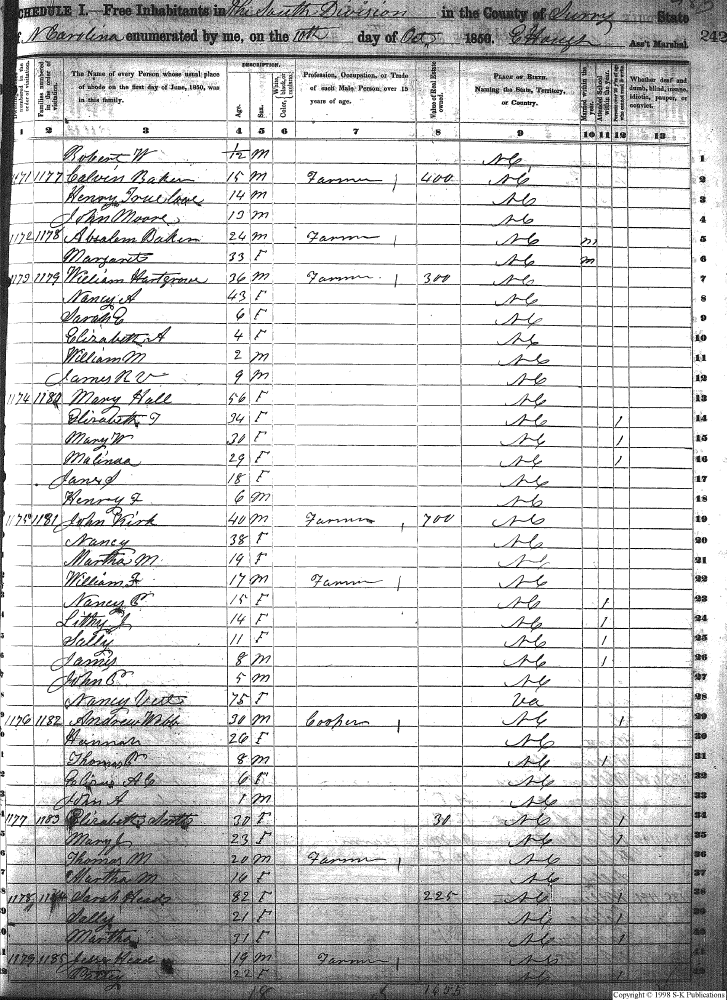 SCHEDULE I.—Free Inhabitants in The South Division in the County of Surry State
N Carolina enumerated by me, on the 10th day of Oct 1850. Ass't Marshal. 242
DESCRIPTION.
Families numbered in the order of visitation. The Name of every Person whose usual place of abode on the first day of June, 1850, was in this family. Age. Sex. Color, Profession, Occupation, or Trade of each Male Person, over 15 years of age. Value of Real Estate owned. PLACE OF BIRTH. Naming the State, Territory, or Country. Married within the year. Attended School within the year. Whether deaf and dumb, blind, insane, idiotic, pauper, or convict.
1 2 3 4 5 6 7 8 9 10 11 12 13
Robert W 1/12 M NC 1
1177 Calvin Baker 15 M Farmer 1 400 NC 2
Henry Truelove 14 M NC 3
John Moore 13 M NC 4
1172 1178 Absalem Baker 24 M Farmer 1 NC m 5
Margaret 33 F NC m 6
1173 1179 William Hartgrove 36 M Farmer 1 300 NC 7
Nancy A 43 F NC 8
Sarah E 6 F NC 9
Elizabeth A 4 F NC 10
William M 2 M NC 11
James R V 9 M NC 12
1174 1180 Mary Hall 56 F NC 13
Elizabeth T 34 F NC 1 14
Mary W 30 F NC 1 15
Malinda 29 F NC 1 16
Jane S 18 F NC 17
Henry F 6 M NC 18
1175 1181 John Kirk 40 M Farmer 1 700 NC 19
Nancy 38 F NC 20
Martha M 19 F NC 21
William F 17 M Farmer 1 NC 22
Nancy C 15 F NC 1 23
Lithy J 14 F NC 1 24
Sally 11 F NC 1 25
James 8 M NC 1 26
John C 5 M NC 27
Nancy 75 F Va 28
1176 1182 Andrew Webb 30 M Cooper 1 NC 1 29
Hannah 26 F NC 30
Thomas C 8 M NC 1 31
A C 6 F NC 32
John A 1 M NC 33
1177 1183 Elizabeth Scott 30 F 30 NC 1 34
Mary J 23 F NC 1 35
Thomas M 20 M Farmer 1 NC 36
Martha M 16 F NC
1178 1184 Sarah Head 82 F 225 NC 1
Sally 21 F NC 1
Martha 31 F NC 1
1179 1185 Head 19 M Farmer 1 NC
22 F NC 1
Copyright © 1998 S-K Publications